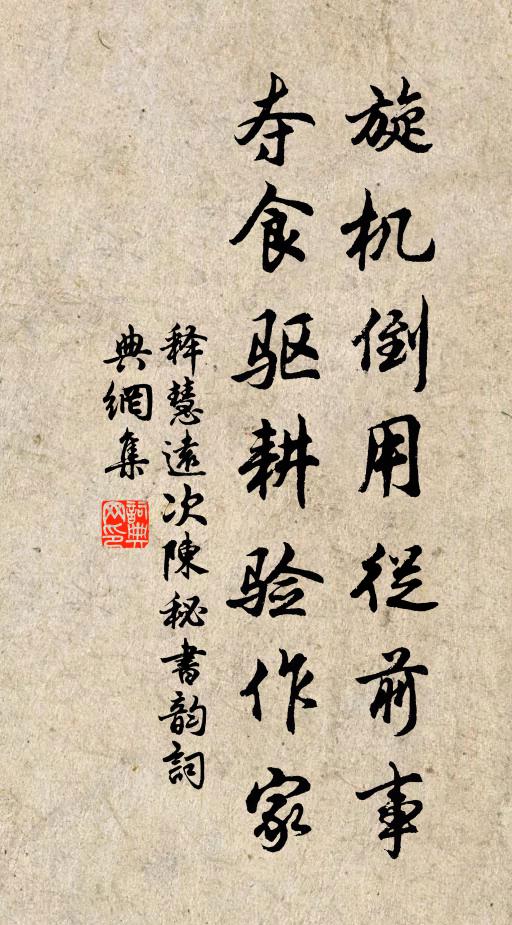 旋机倒用従前事
夺食驱耕验作家
释慧遠次陳秘書韵詞
典網集
詞典网印